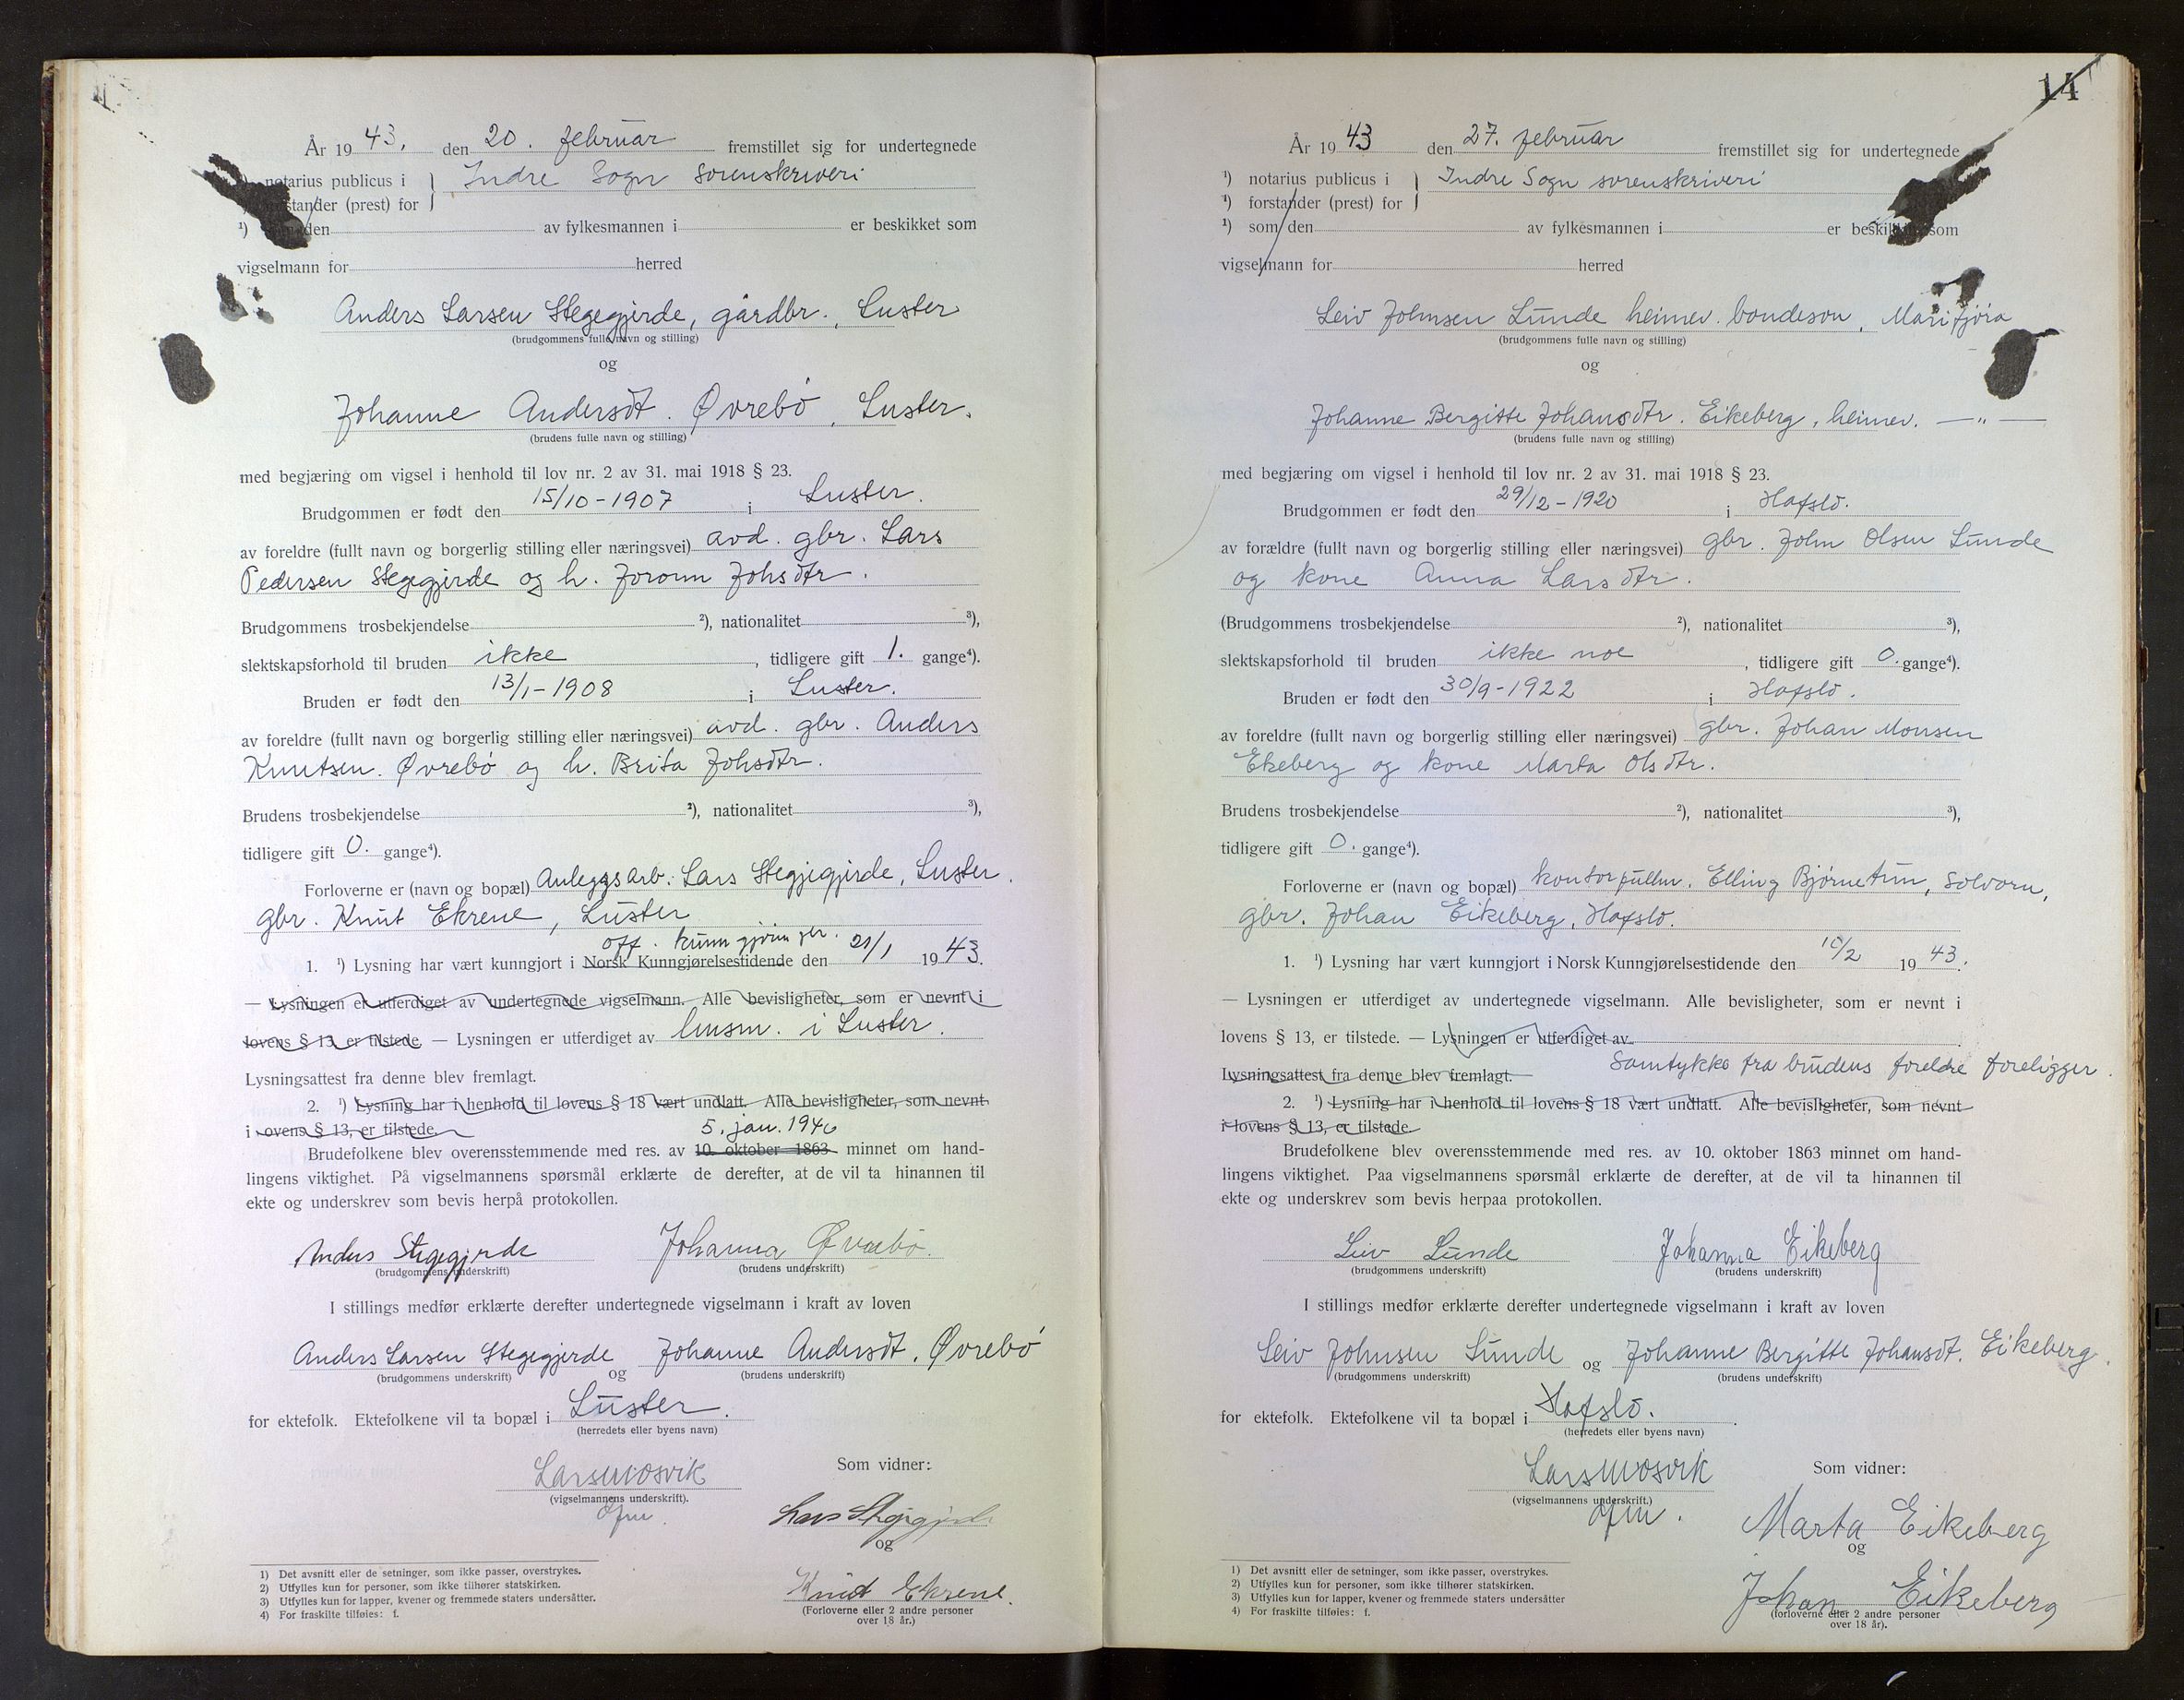 År 1943. den 20. februar fremstillet sig for undertegnede
notarius publicus i Indre Sogn sorenskriveri
forstander (prest) for
¹) som den av fylkesmannen i er beskikket som
vigselmann for herred
Anders Larsen Stegegjerde, gårdbr., Luster
(brudgommens fulle navn og stilling)
og
Johanne Andersdt. Øvrebö, Luster.
(brudens fulle navn og stilling)
med begjæring om vigsel i henhold til lov nr. 2 av 31. mai 1918 § 23.
Brudgommen er født den 15/10-1907 i Luster.
av foreldre (fullt navn og borgerlig stilling eller næringsvei) avd. gbr. Lars
Pedersen Stegegjerde og h. Joronn Johsdtr.
Brudgommens trosbekjendelse ²), nationalitet ³),
slektskapsforhold til bruden ikke, tidligere gift 1. gange⁴).
Bruden er født den 13/1-1908 i Luster.
av foreldre (fullt navn og borgerlig stilling eller næringsvei) avd. gbr. Anders
Knutsen. Øvrebö og h. Brita Johsdtr.
Brudens trosbekjendelse ²), nationalitet ³),
tidligere gift 0. gange⁴).
Forloverne er (navn og bopæl) Anleggsarb. Lars Stegjegjerde, Luster.
gbr. Knut Ekrene, Luster
off. kunngjöringer.
1. ¹) Lysning har vært kunngjort i Norsk Kunngjørelsestidende den 21/1 1943.
— Lysningen er utferdiget av undertegnede vigselmann. Alle bevisligheter, som er nevnt i
lovens § 13, er tilstede. — Lysningen er utferdiget av lensm. i Luster.
Lysningsattest fra denne blev fremlagt.
2. ¹) Lysning har i henhold til lovens § 18 vært undlatt. Alle bevisligheter, som nevnt
i lovens § 13, er tilstede.
5. jan. 1940
Brudefolkene blev overensstemmende med res. av 10. oktober 1863 minnet om hand-
lingens viktighet. På vigselmannens spørsmål erklærte de derefter, at de vil ta hinannen til
ekte og underskrev som bevis herpå protokollen.
Anders Stegegjerde Johanna Øvrebö.
(brudgommens underskrift) (brudens underskrift)
I stillings medfør erklærte derefter undertegnede vigselmann i kraft av loven
Anders Larsen Stegegjerde og Johanne Andersdt. Øvrebö
(brudgommens underskrift) (brudens underskrift)
for ektefolk. Ektefolkene vil ta bopæl i Luster.
(herredets eller byens navn)
Som vidner:
Lars Mosvik
(vigselmannens underskrift).
Lars Stegjegjerde
og
Knut Ekrene.
(Forloverne eller 2 andre personer
over 18 år.)
1) Det avsnitt eller de setninger, som ikke passer, overstrykes.
2) Utfylles kun for personer, som ikke tilhører statskirken.
3) Utfylles kun for lapper, kvener og fremmede staters undersåtter.
4) For fraskilte tilføies: f.
14
År 1943 den 27. februar fremstillet sig for undertegnede
¹) notarius publicus i Indre Sogn sorenskriveri
¹) forstander (prest) for
¹) som den av fylkesmannen i er beskikket som
vigselmann for herred
Leiv Johnsen Lunde heimev. bondeson, Marifjöra
(brudgommens fulle navn og stilling)
og
Johanne Bergitte Johansdtr. Eikeberg, heimev. — " —
(brudens fulle navn og stilling)
med begjæring om vigsel i henhold til lov nr. 2 av 31. mai 1918 § 23.
Brudgommen er født den 29/12-1920 i Hafslo.
av forældre (fullt navn og borgerlig stilling eller næringsvei) gbr. John Olsen Lunde
og kone Anna Larsdtr.
(Brudgommens trosbekjendelse ²), nationalitet ³),
slektskapsforhold til bruden ikke noe, tidligere gift 0. gange⁴).
Bruden er født den 30/9-1922 i Hafslo.
av foreldre (fullt navn og borgerlig stilling eller næringsvei) gbr. Johan Monsen
Ekeberg og kone Marta Olsdtr.
Brudens trosbekjendelse ²), nationalitet ³),
tidligere gift 0. gange⁴).
Forloverne er (navn og bopæl) kontorfullm. Elling Bjørnetun, Solvorn,
gbr. Johan Eikeberg, Hafslo.
1. ¹) Lysning har vært kunngjort i Norsk Kunngjørelsestidende den 10/2 1943.
— Lysningen er utferdiget av undertegnede vigselmann. Alle bevisligheter, som er nevnt i
lovens § 13, er tilstede. — Lysningen er utferdiget av
Lysningsattest fra denne blev fremlagt. Samtykke fra brudens foreldre foreligger.
2. ¹) Lysning har i henhold til lovens § 18 vært undlatt. Alle bevisligheter, som nevnt
i lovens § 13, er tilstede.
Brudefolkene blev overensstemmende med res. av 10. oktober 1863 minnet om hand-
lingens viktighet. Paa vigselmannens spørsmål erklærte de derefter, at de vil ta hinannen til
ekte og underskrev som bevis herpaa protokollen.
Leiv Lunde Johanna Eikeberg
(brudgommens underskrift) (brudens underskrift)
I stillings medfør erklærte derefter undertegnede vigselmann i kraft av loven
Leiv Johnsen Lunde og Johanne Bergitte Johansdt. Eikeberg.
(brudgommens underskrift) (brudens underskrift)
for ektefolk. Ektefolkene vil ta bopæl i Hafslo.
(herredets eller byens navn)
Som vidner:
Lars Mosvik
(vigselmannens underskrift.)
Marta Eikeberg
og
Johan Eikeberg
(forloverne eller 2 andre personer
over 18 år).
1) Det avsnitt eller de setninger, som ikke passer, overstrykes.
2) Utfylles kun for personer, som ikke tilhører statskirken.
3) Utfylles kun for lapper, kvener og fremmede staters undersåtter
4) For fraskilte tilføies: f.